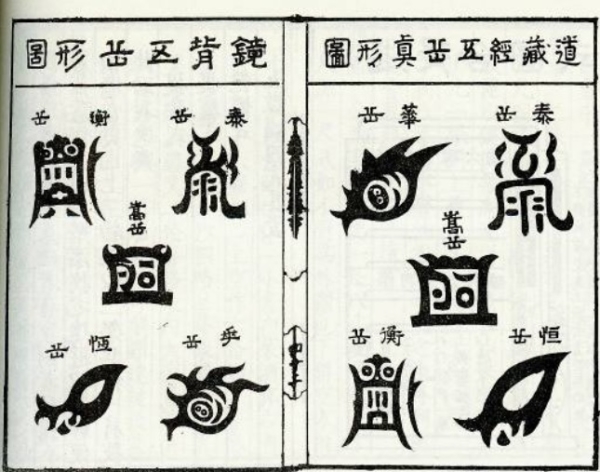 道藏經五岳眞形圖
泰岳
華岳
嵩岳
恒岳
衡岳
鏡背五岳形圖
泰岳
衡岳
嵩岳
岳
恆岳